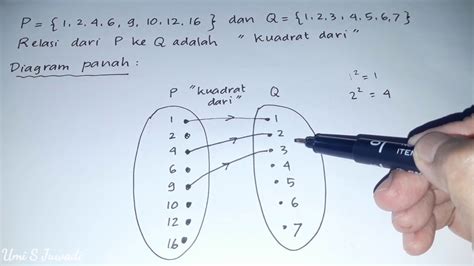 P = { 1, 2, 4, 6, 9, 10, 12, 16 } dan Q = { 1, 2, 3, 4, 5, 6, 7 }
Relasi dari P ke Q adalah " kuadrat dari "
Diagram panah :
1² = 1
2² = 4
P "kuadrat dari" Q
1 1
2 2
4 3
6 4
9 5
10 6
12 7
16
ITEM
Umi S Jawadi